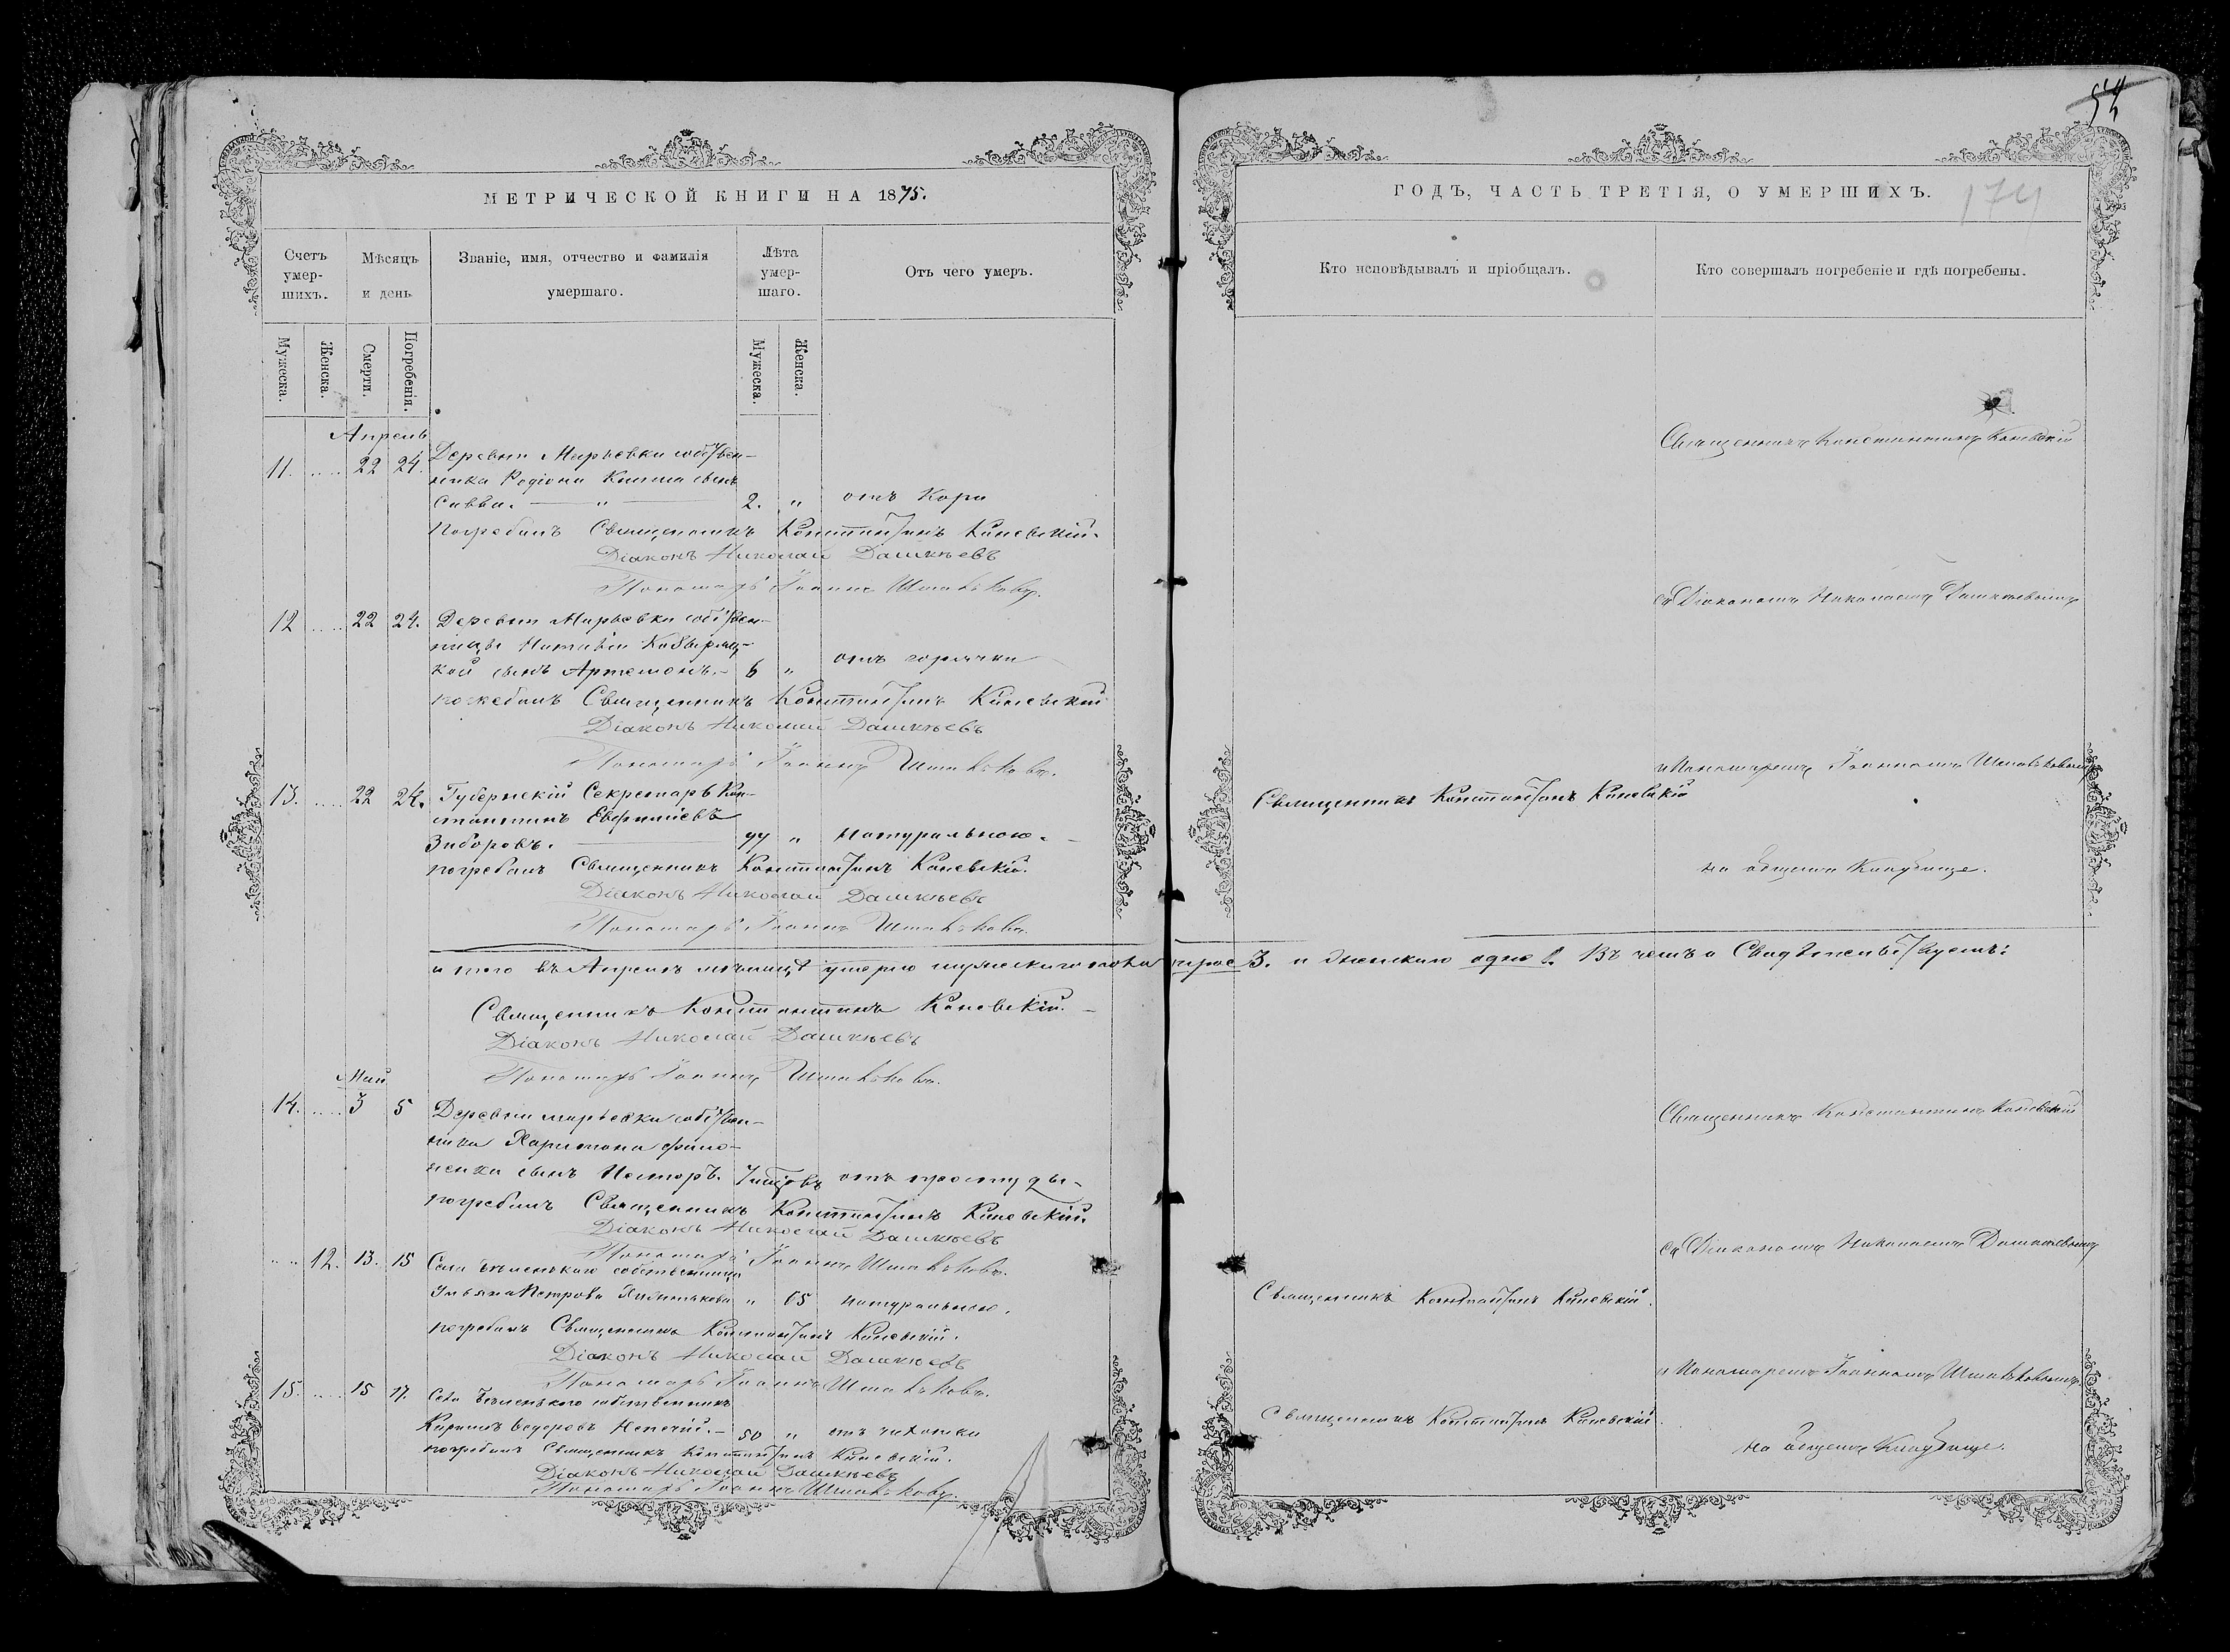 54
МЕТРИЧЕСКОЙ КНИГИ НА 1875.
Счетъ умер-шихъ.
Мѣсяцъ и день
Званіе, имя, отчество и фамилія умершаго.
Лѣта умер-шаго.
Отъ чего умеръ.
Мужеска.
Женска.
Смерти.
Погребенія.
Мужеска.
Женска.
Апрель
11. 22 24. Деревни Марьевки собствен-
ника Родіона сынъ
Савва. 2. " отъ Кори
Погребалъ Священникъ Константинъ Каневскій.
Діаконъ Николай Дашкѣевъ
Пономарь Іоаннъ
12 22 24. Деревни Марьевки собствен-
ницы Наталіи
кой сынъ Артемонъ. 6 " отъ горячки
погребалъ Священникъ Константинъ Каневскій
Діаконъ Николай Дашкѣевъ
Пономарь Іоаннъ
13. 22 24. Губернскій Секретарь Кон-
стантинъ
Зиборовъ. 77 " натуральною.
погребалъ Священникъ Константинъ Каневскій.
Діаконъ Николай Дашкѣевъ
Пономарь Іоаннъ
и того въ Апрелѣ месяцѣ умерло мужескаго пола трое 3. и женскаго одна 1. Въ чемъ и Свидѣтельствуемъ:
Священникъ Константинъ Каневскій.
Діаконъ Николай Дашкѣевъ
Пономарь Іоаннъ
Май
14. 3 5 Деревни Марьевки собствен-
ника Харитона
ненка сынъ Несторъ. отъ простуды.
погребалъ Священникъ Константинъ Каневскій.
Діаконъ Николай Дашкѣевъ
Пономарь Іоаннъ
12. 13. 15 Села Бѣленькаго собственница
Ульяна Петрова " 65 натуральною.
погребалъ Священникъ Константинъ Каневскій.
Діаконъ Николай Дашкѣевъ
Пономарь Іоаннъ
15. 15 17. Села Бѣленького собственникъ
Кириллъ Федоровъ 50 " отъ чахотки
погребалъ Священникъ Константинъ Каневскій.
Діаконъ Николай Дашкѣевъ
Пономарь Іоаннъ
ГОДЪ, ЧАСТЬ ТРЕТІЯ, О УМЕРШИХЪ.
174
Кто исповѣдывалъ и пріобщалъ.
Кто совершалъ погребеніе и гдѣ погребены.
Священникъ Константинъ Каневскій
съ Діакономъ Николаемъ Дашкѣевымъ
и Пономаремъ Іоанномъ
Священникъ Константинъ Каневскій
на общемъ Кладбище.
Священникъ Константинъ Каневскій
съ Діакономъ Николаемъ Дашкѣевымъ
Священникъ Константинъ Каневскій.
и Пономаремъ Іоанномъ
Священникъ Константинъ Каневскій.
на общемъ Кладбище.